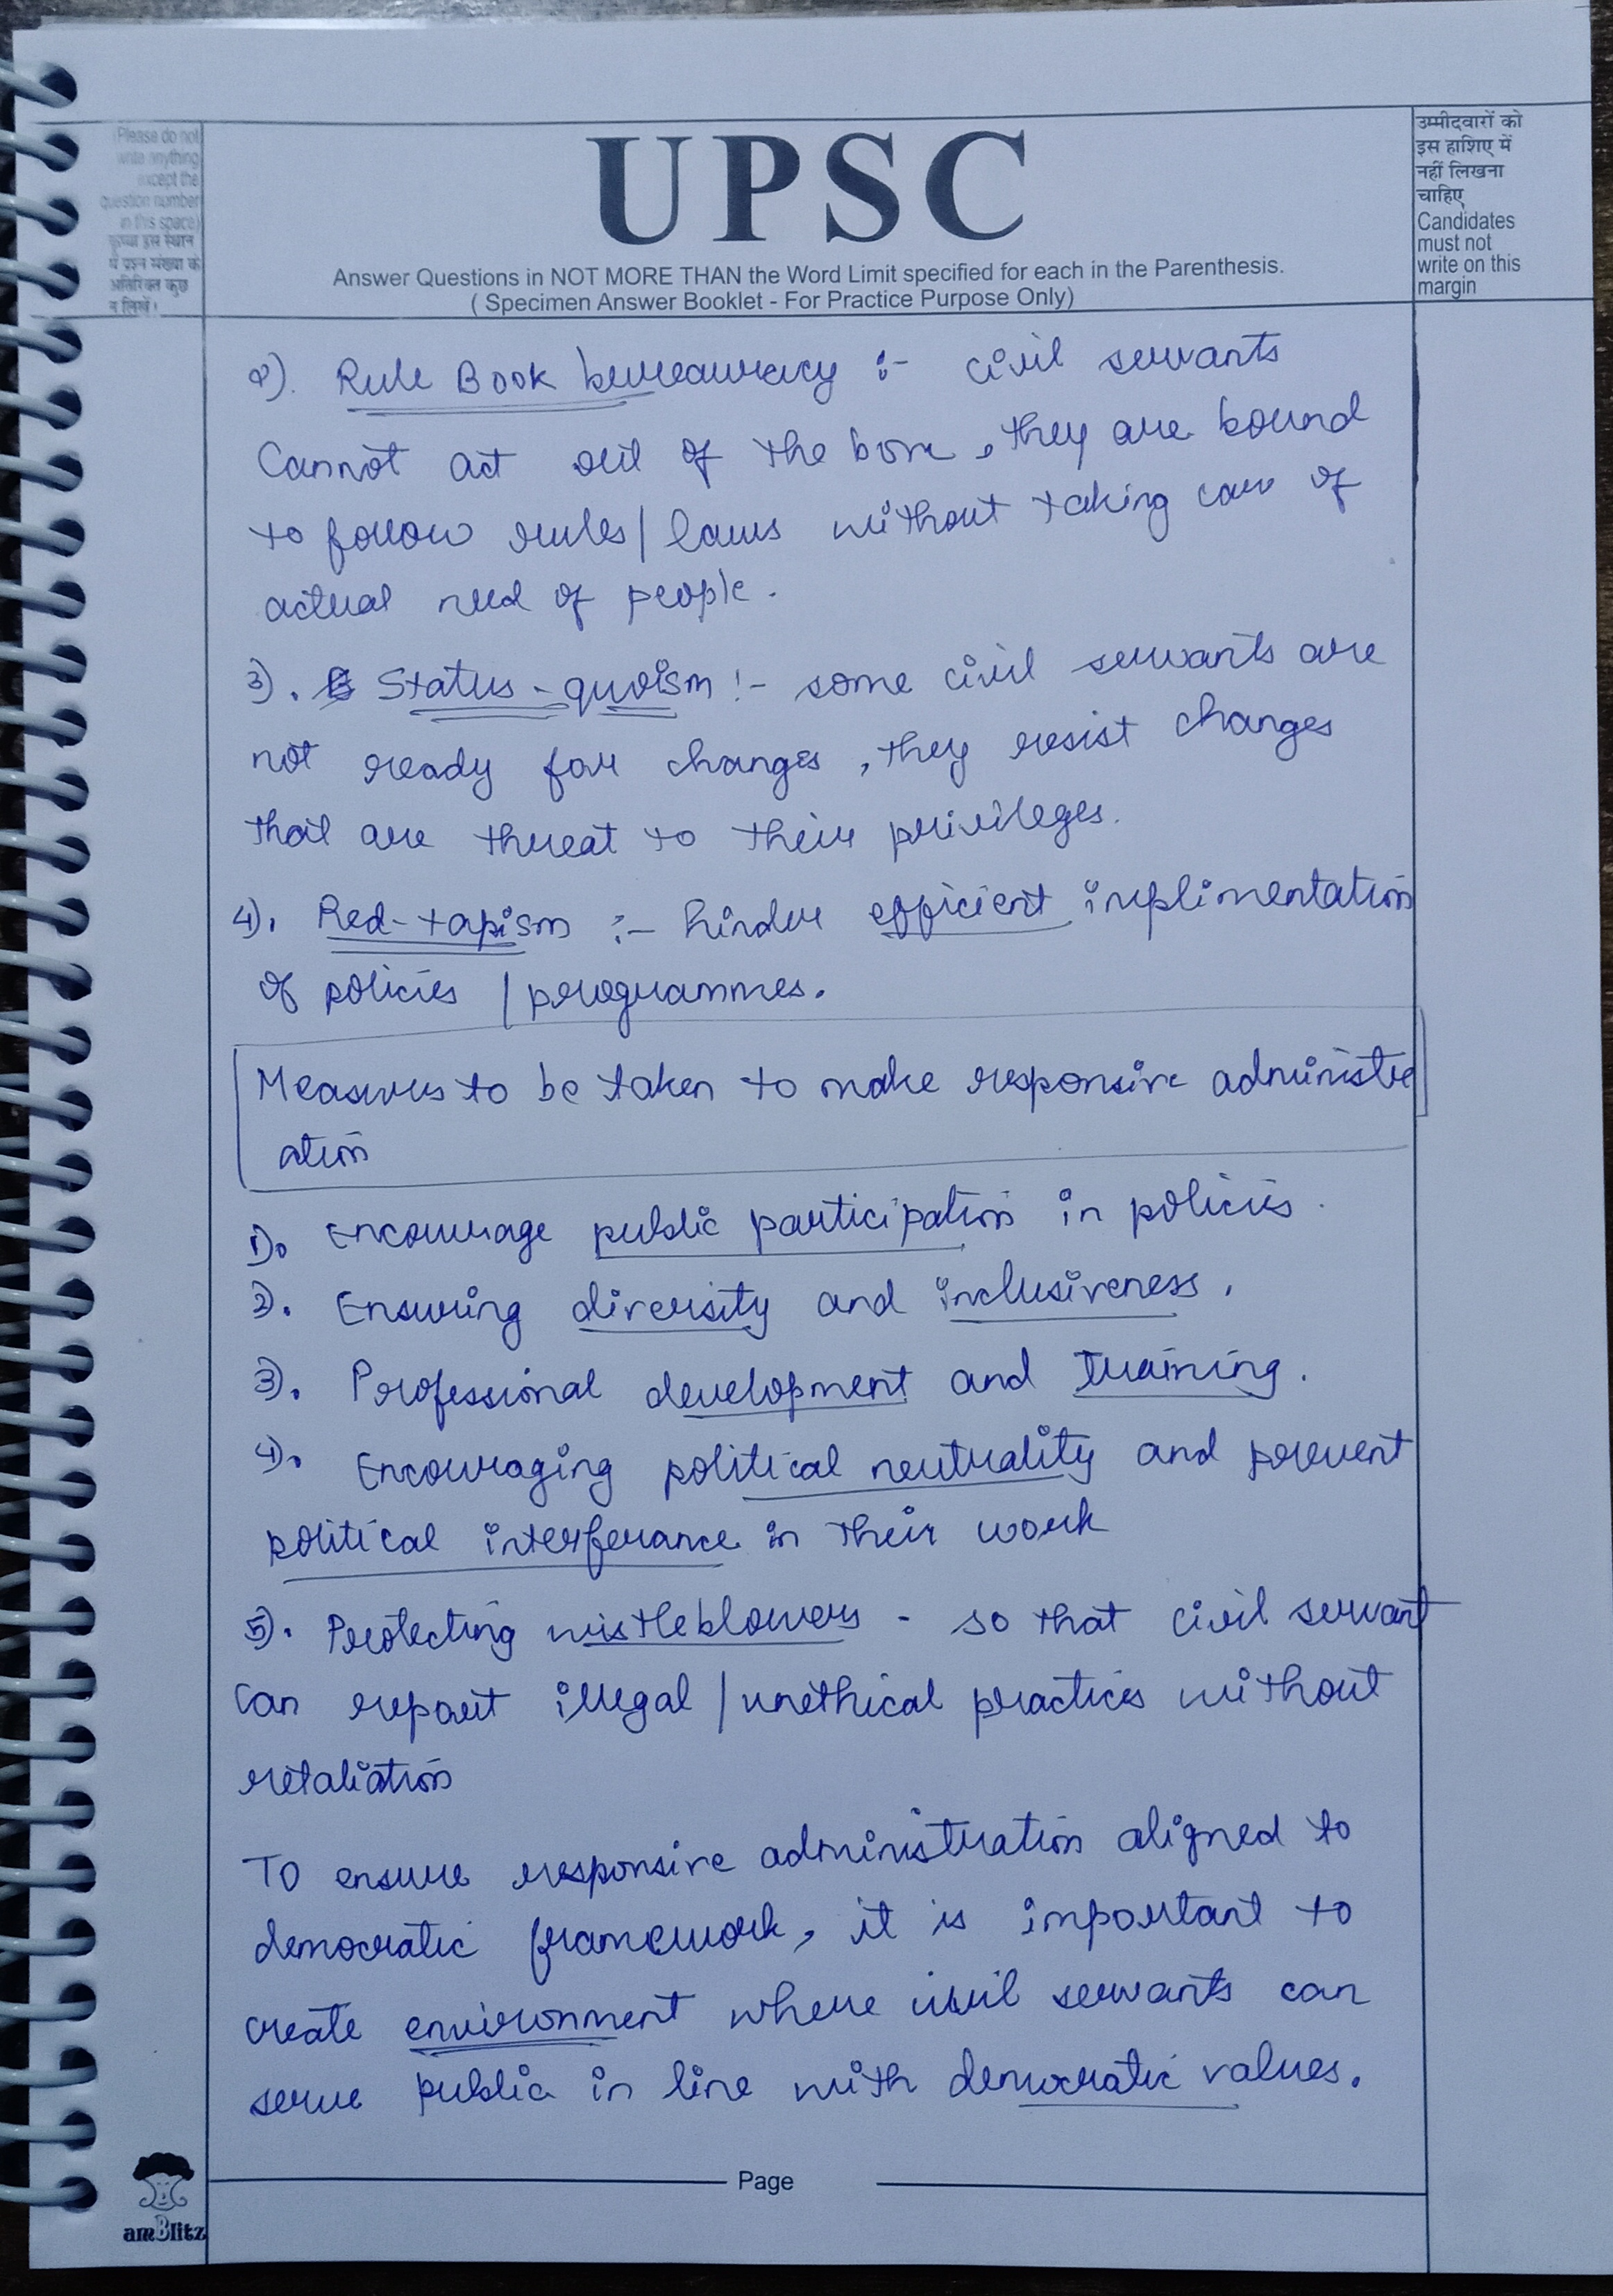 (Please do not
write anything
except the
question number
in this space)
कृपया इस स्थान
में प्रश्न संख्या के
अतिरिक्त कुछ
न लिखें।
UPSC
Answer Questions in NOT MORE THAN the Word Limit specified for each in the Parenthesis.
( Specimen Answer Booklet - For Practice Purpose Only)
उम्मीदवारों को
इस हाशिए में
नहीं लिखना
चाहिए
Candidates
must not
write on this
margin
2). Rule Book bureaucracy :- civil servants
cannot act out of the box, they are bound
to follow rules/laws without taking care of
actual need of people.
3). Status-quoism :- some civil servants are
not ready for changes, they resist changes
that are threat to their privileges.
4). Red-tapism :- hinder efficient implimentation
of policies / programmes.
Measures to be taken to make responsive administr
ation
1). Encourage public participation in policies.
2). Ensuring diversity and inclusiveness.
3). Professional development and training.
4). Encouraging political neutrality and prevent
political interferance in their work
5). Protecting wistleblowers - so that civil servant
can report illegal / unethical practices without
retaliation
To ensure responsive administration aligned to
democratic framework, it is important to
create environment where civil servants can
serve public in line with democratic values.
Page
amBlitz